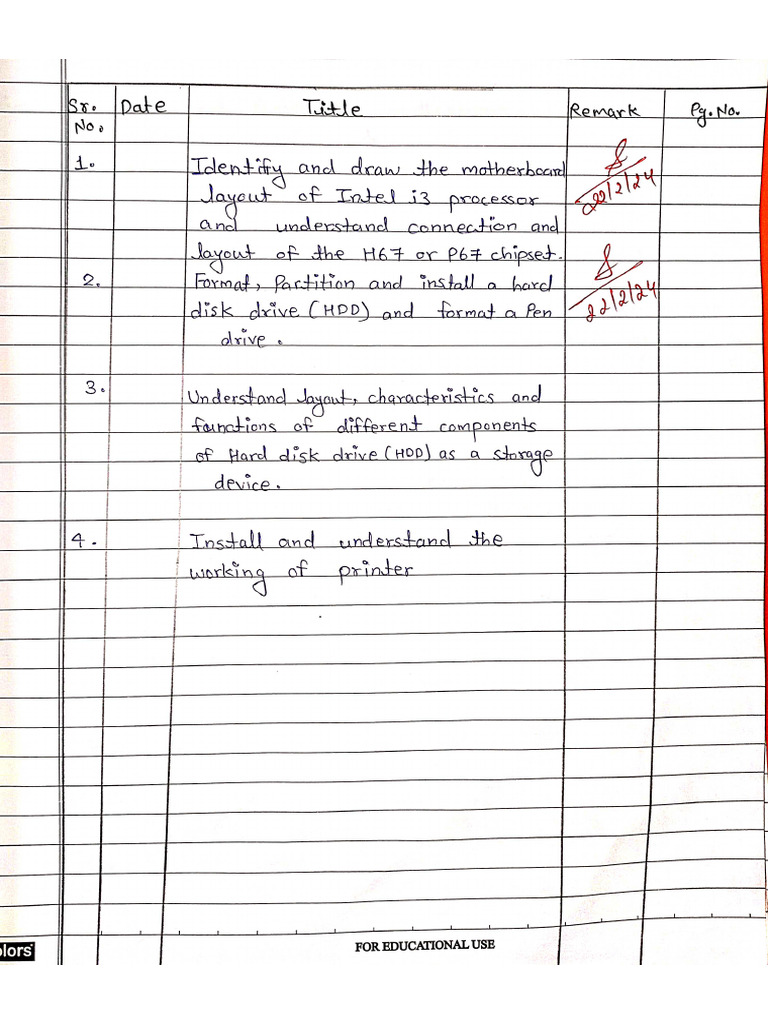 Sr. No. Date Title Remark Pg. No.
1. Identify and draw the motherboard
layout of Intel i3 processor
22/2/24
and understand connection and
layout of the H67 or P67 chipset.
2. Format, Partition and install a hard
disk drive (HDD) and format a Pen
22/2/24
drive.
3. Understand layout, characteristics and
functions of different components
of Hard disk drive (HDD) as a storage
device.
4. Install and understand the
working of printer
FOR EDUCATIONAL USE
olors